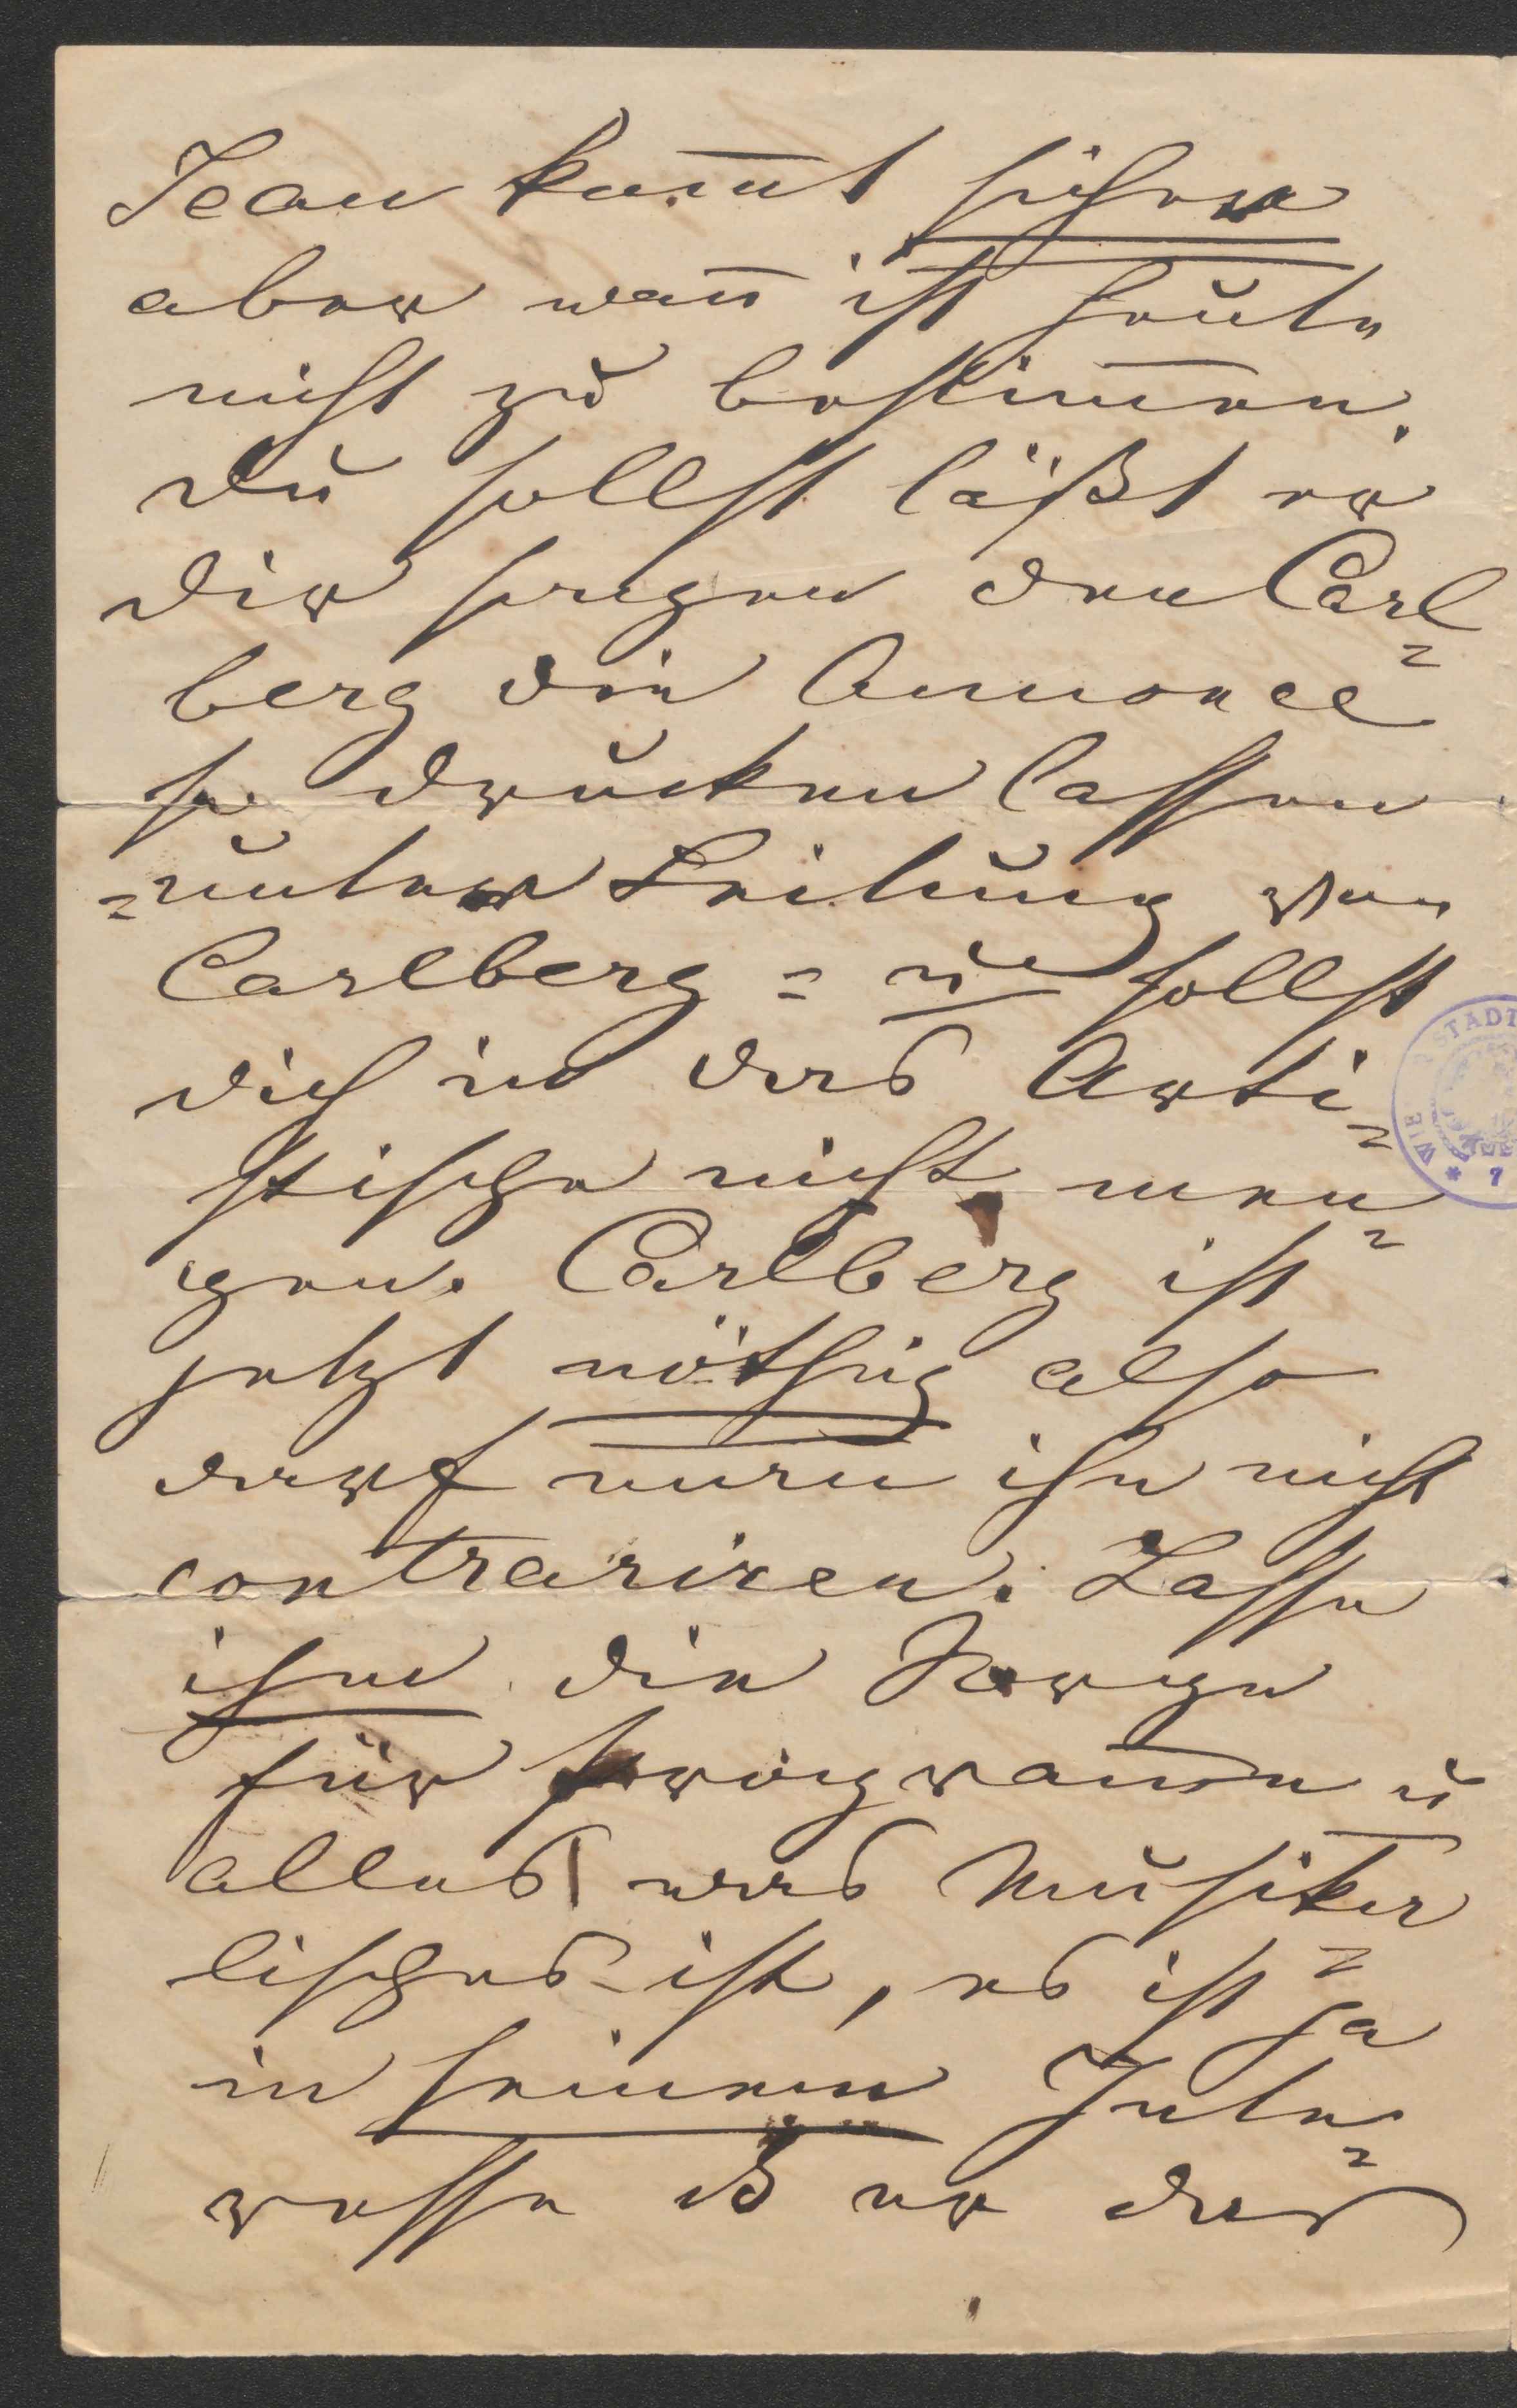 Jean kom̅t sicher
aber wan̅ ist heute
nicht zu bestim̅en.
Du sollst läßt er
dir sagen den Carl=
berg die Annonce
so drucken lassen
=unter Leitung von
Carlberg = u sollst
dich in das Arti=
stische nicht men=
gen. Carlberg ist
jetzt nöthig also
darf man ihn nicht
contrariren. Lasse
ihm die Sorge
für Programme u
alles was Musika=
lisches ist, es ist ja
in seinem Inte=
resse daß er das
WIE STADT
* 7